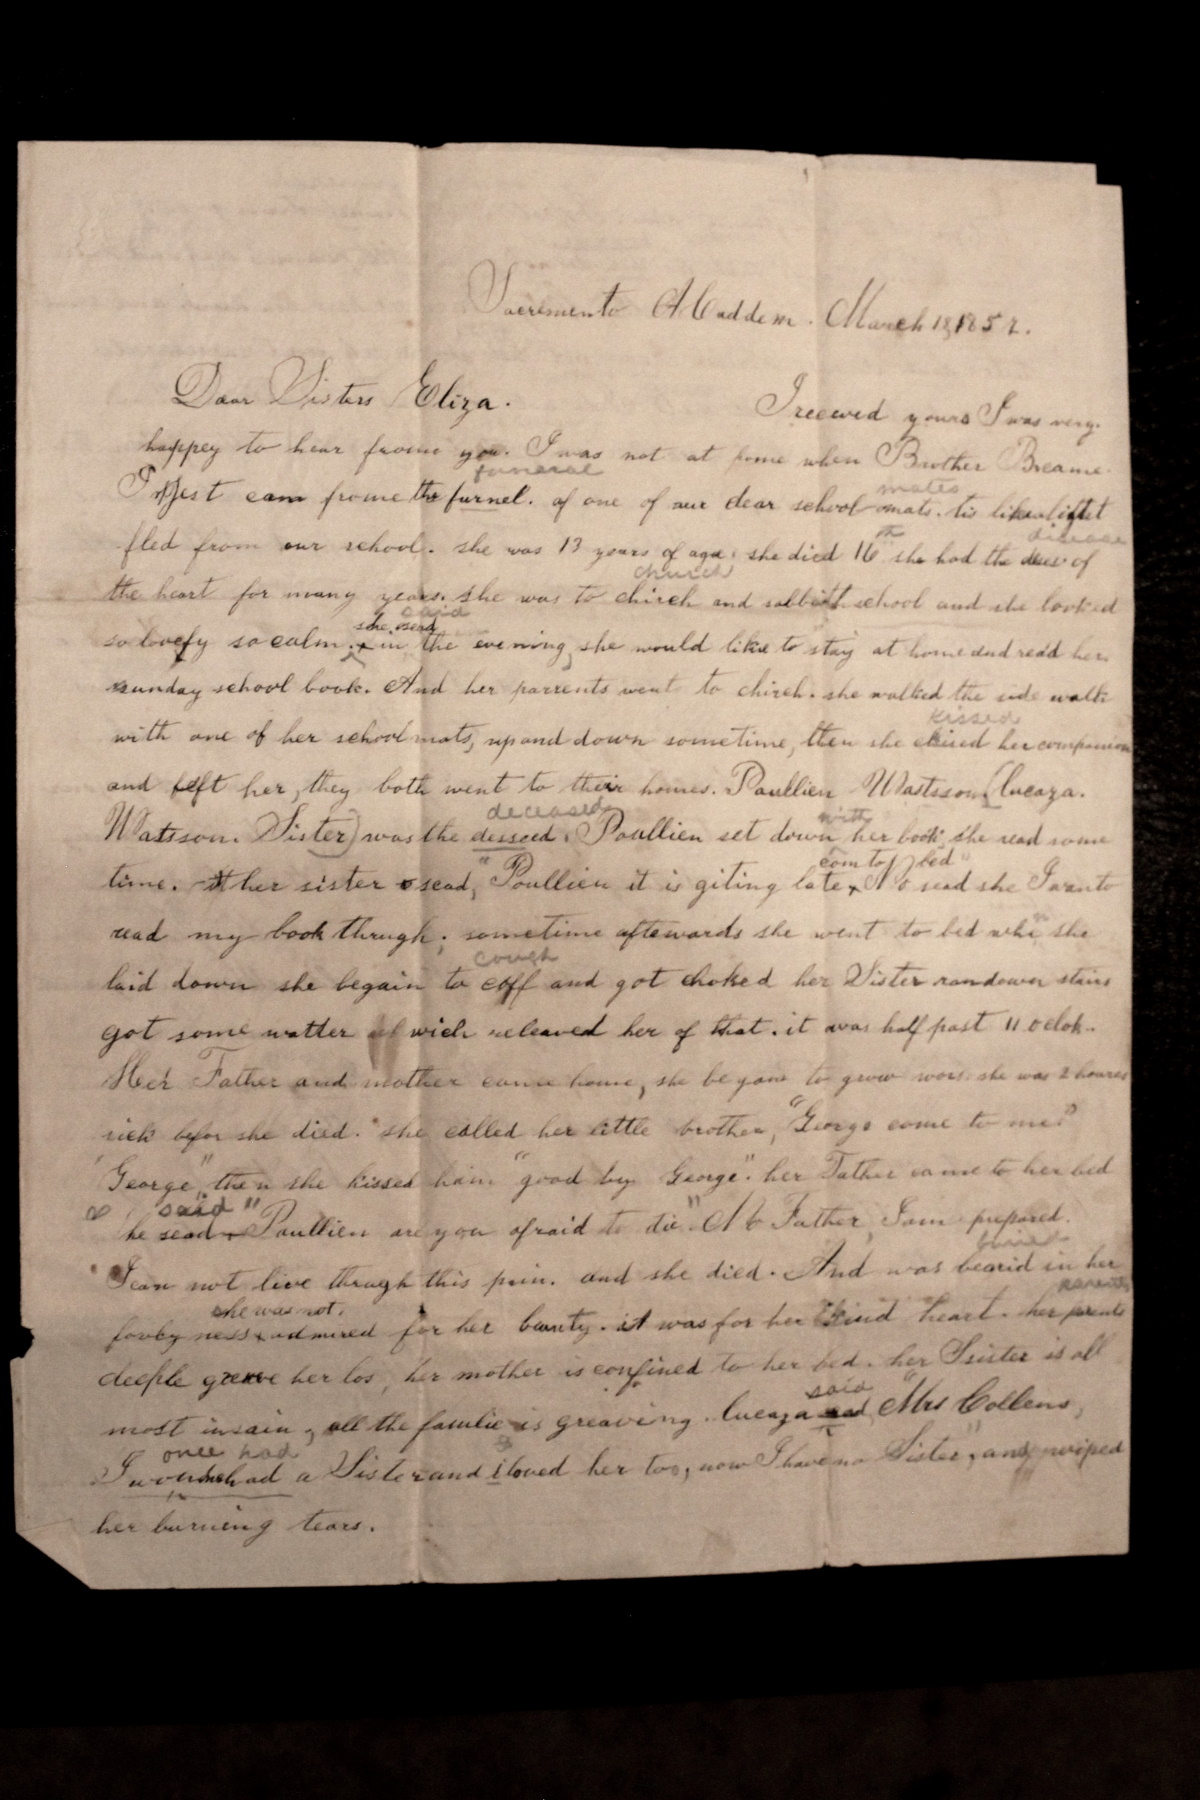 Sacremento Academ. March 18, 1852.
Dear Sisters Eliza.
I recewed yours I was very
happey to hear frome you. I was not at home when Brother Breame.
funeral mates
I Jest cam frome the furnel. of one of our dear school mats. tis like
disease
fled from our school. she was 13 years of age. she died 16th she had the of
church
the heart for many years. she was to chirch and sabbath school and she looked
she sead said
so lovely so calm. in the evening, she would like to stay at home and read her
sunday school book. And her parrents went to chirch. she walked the side walk
kissed
with one of her school mats, up and down sometime, then she kised her companion
and left her, they both went to their homes. Paullien Watsson (lucaza.
deceased with
Watsson. Sister) was the desseed. Paullien set down her book, she read some
com to bed"
time. her sister sead, "Paullien it is giting late No sead she I wanto
read my book thrugh; sometime aftewards she went to bed when she
cough
laid down she begain to coff and got choked her Sister ran down stairs
got some watter wich releaved her of that. it was half past 11 oclok.
Her Father and mother came home, she began to grow wors she was 2 houres
sick befor she died. she called her little brother, "George come to me"
"George", then she kissed him "good by George". her Father came to her bed
said
he sead "Paullien are you afraid to die" No Father, I am prepared.
buried
I can not live thrugh this pain. and she died. And was bearid in her
she was not. parents
lovely ness admired for her beauty. it was for her kind heart. her parents
deeple greve her los, her mother is confined to her bed. her Sister is all
said
most insain, all the familie is greaving. lucaza sead, "Mrs Collens,
once had
I had a Sister and I loved her too, now I have no Sister", and wiped
her burning tears.